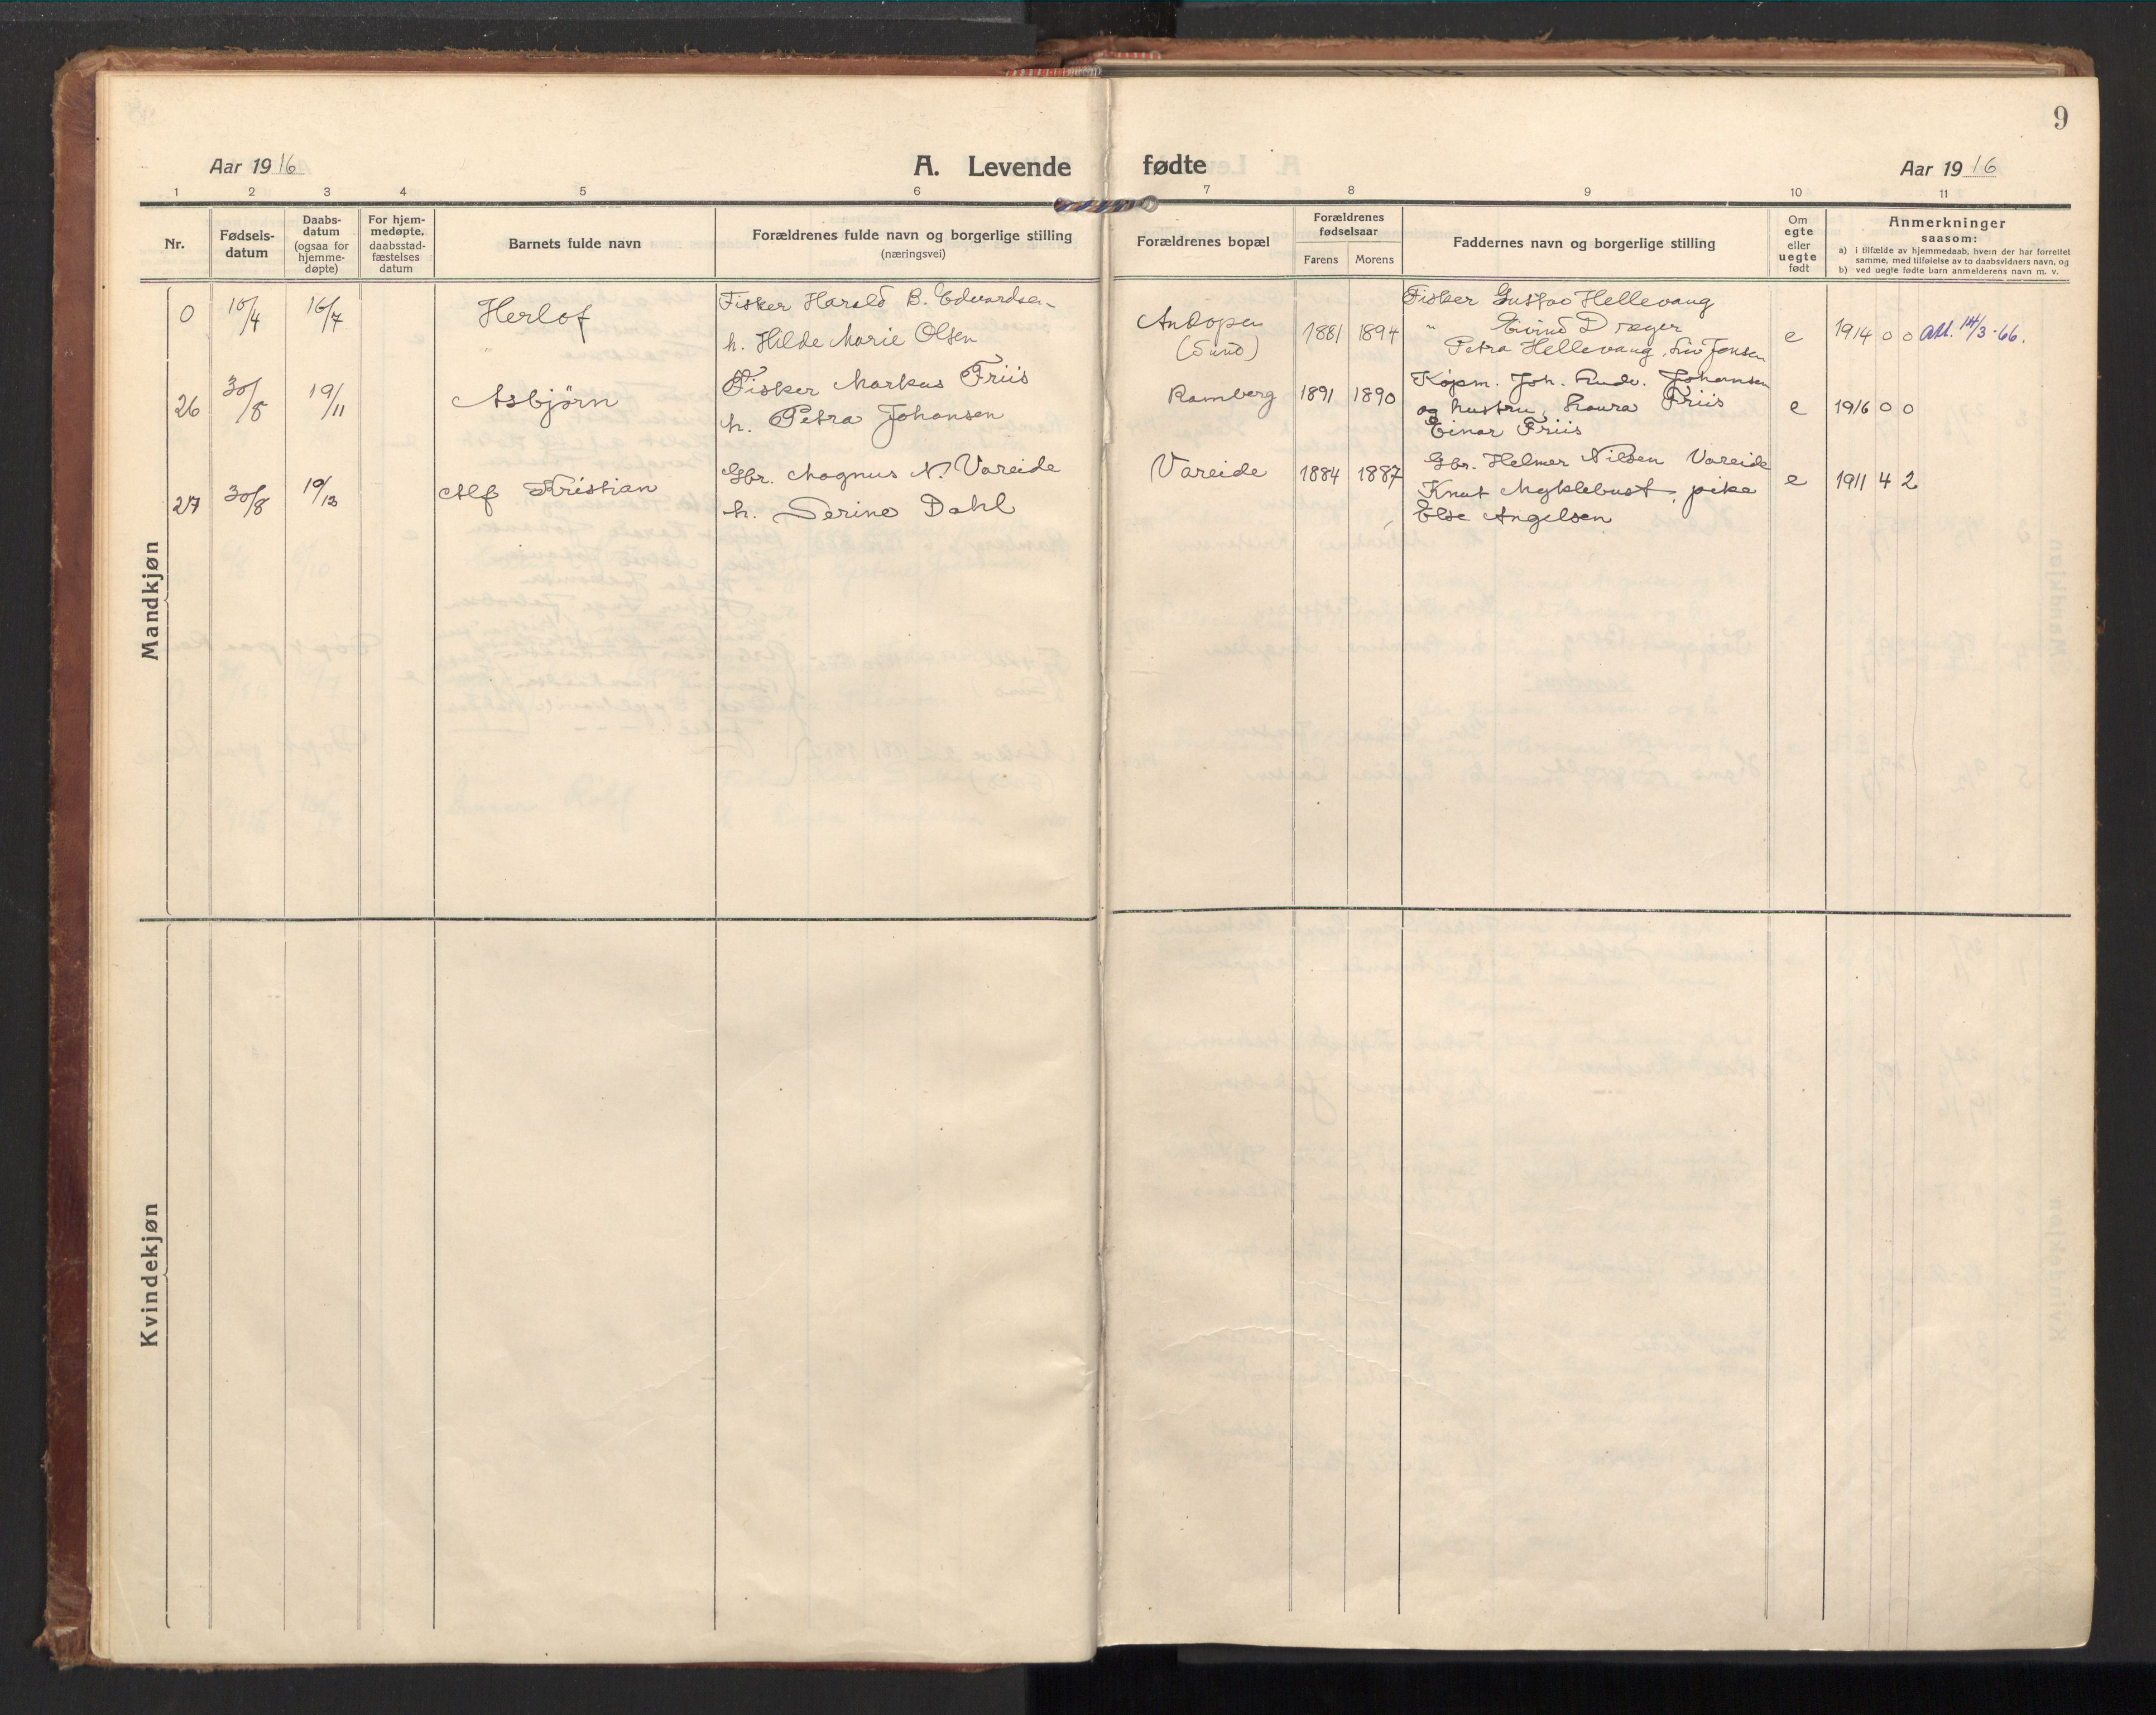 9
Aar 1916
A. Levende fødte
Aar 1916
1 2 3 4 5 6 7 8 9 10 11
Nr.
Fødsels-
datum
Daabs-
datum
(ogsaa for
hjemme-
døpte)
For hjem-
medøpte,
daabsstad-
fæstelses
datum
Barnets fulde navn
Forældrenes fulde navn og borgerlige stilling
(næringsvei)
Forældrenes bopæl
Forældrenes
fødselsaar
Farens Morens
Faddernes navn og borgerlige stilling
Om
egte
eller
uegte
født
Anmerkninger
saasom:
a) i tilfælde av hjemmedaab, hvem der har forrettet
samme, med tilføielse av to daabsvidners navn, og
b) ved uegte fødte barn anmelderens navn m. v.
Mandkjøn
0 10/4 16/7 Herlof
Fisker Harald B. Edvardsen
h. Hilde Marie Olsen
Andopen
(Sund)
1881 1894
Fisker Gustav Hellevang
" Eivind Dræger
Petra Hellevang, Liv Jensen
e 1914 0 0 Att. 14/3-66.
26 30/8 19/11 Asbjörn
Fisker Markus Friis
h. Petra Johansen
Ramberg 1891 1890
Kjøpm. Joh. Rudv. Johansen
og hustru, Laura Friis
Einar Friis
e 1916 0 0
27 30/8 19/12 Alf Kristian
Gbr. Magnus N. Vareide
h. Serine Dahl
Vareide 1884 1887
Gbr. Helmer Nilsen Vareide
Knut Myklebust, pike
Else Angelsen
e 1911 4 2
Kvindekjøn